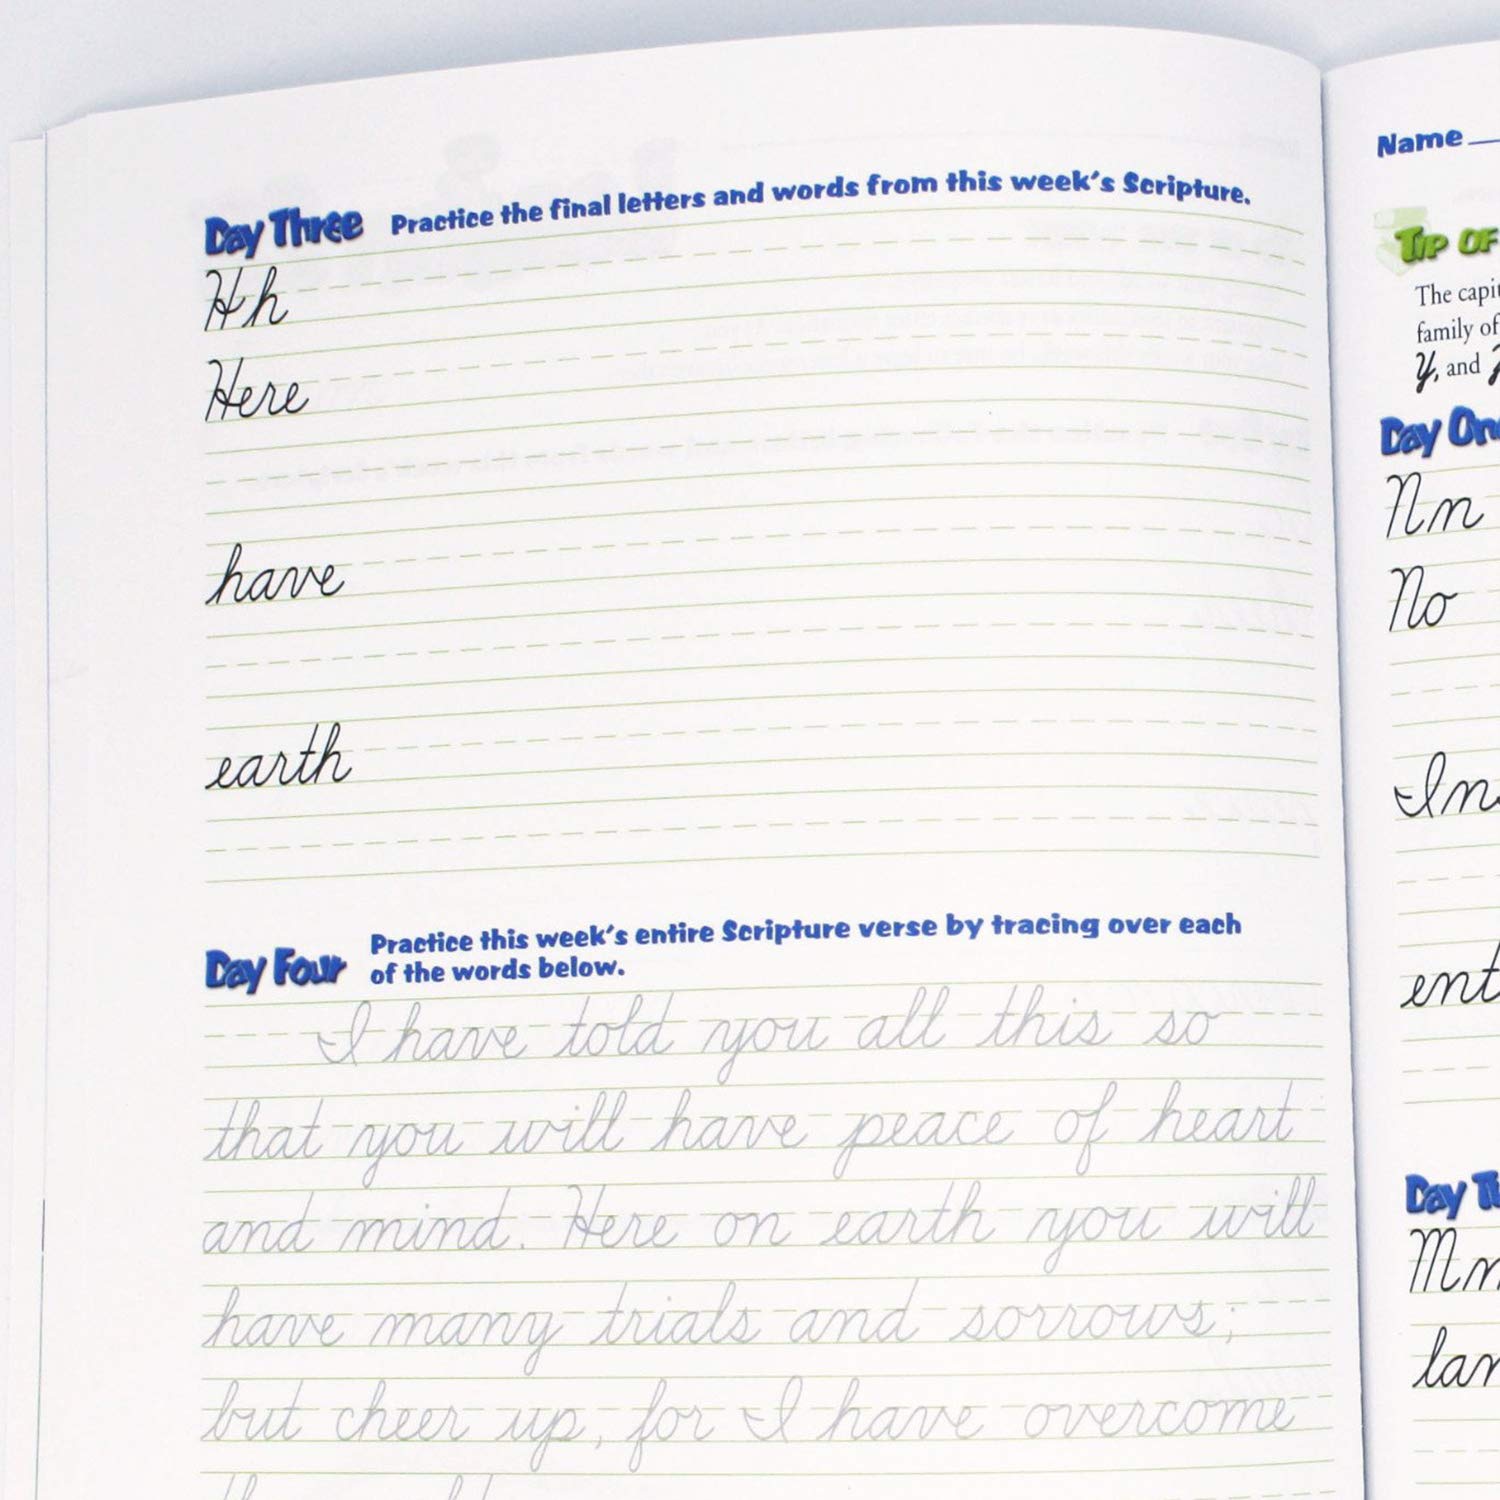 Day Three Practice the final letters and words from this week's Scripture.
Hh
Here
have
earth
Day Four Practice this week's entire Scripture verse by tracing over each
of the words below.
I have told you all this so
that you will have peace of heart
and mind. Here on earth you will
have many trials and sorrows;
but cheer up, for I have overcome
Name
Tip of
The capi
family of
Y, and
Day On
Nn
No
In
ent
Day T
Mm
lan